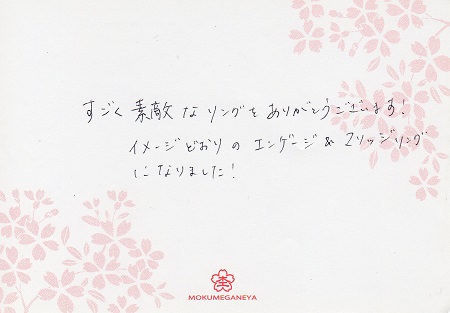 すごく素敵なリングをありがとうございます!
イメージどおりのエンゲージ&マリッジリング
になりました!
MOKUMEGANEYA